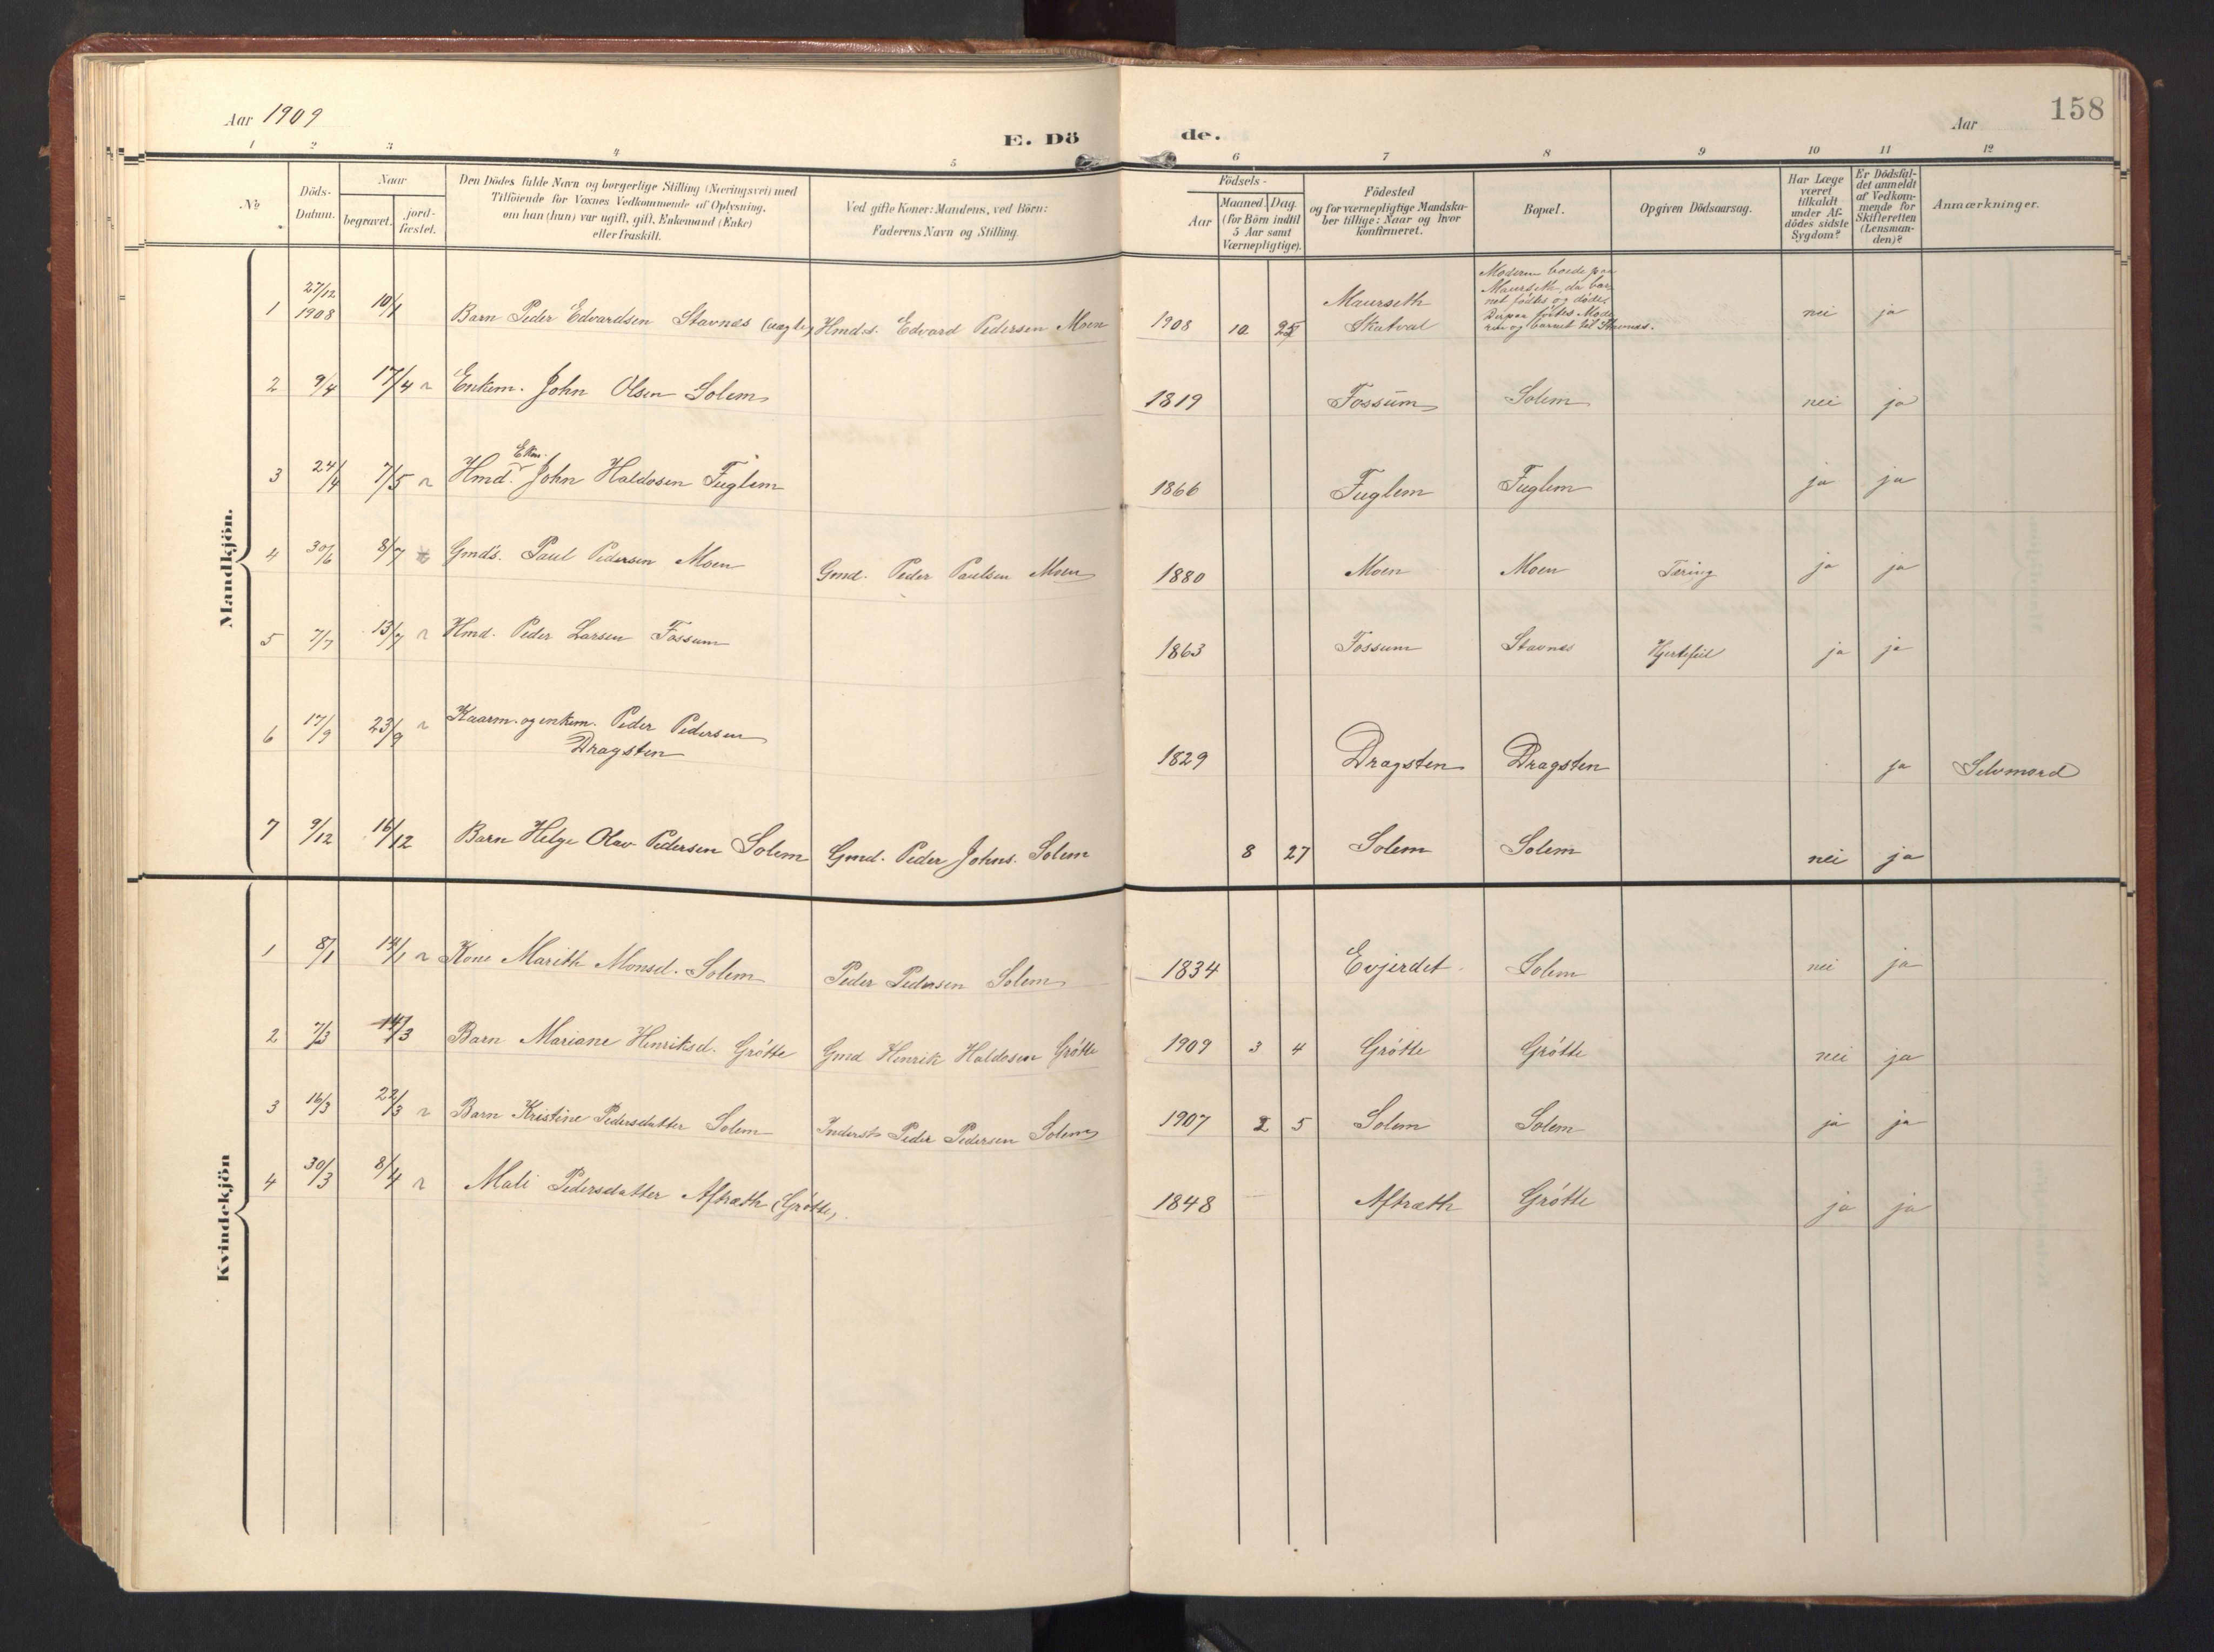 Aar 1909
E. Dö
de.
Aar
158
1 2 3 4 5 6 7 8 9 10 11 12
No
Döds-
Datum.
Naar
begravet.
jord-
fæstet.
Den Dödes fulde Navn og borgerlige Stilling (Næringsvei) med
Tilföiende for Voxnes Vedkommende af Oplysning,
om han (hun) var ugift, gift, Enkemand (Enke)
eller fraskilt.
Ved gifte Koner: Mandens, ved Börn:
Faderens Navn og Stilling.
Födsels-
Aar
Maaned. Dag.
(for Börn indtil
5 Aar samt
Værnepligtige).
Födested
og for værnepligtige Mandska-
ber tillige: Naar og hvor
konfirmeret.
Bopæl.
Opgiven Dödsaarsag.
Har Læge
været
tilkaldt
under Af-
dödes sidste
Sygdom?
Er Dödsfal-
det anmeldt
af Vedkom-
mende for
Skifteretten
(Lensman-
den)?
Anmærkninger.
Mandkjön.
1 27/12 1908 10/1 Barn Peder Edvardsen Stavnæs (uægte) Hmds. Edvard Pedersen Moen 1908 10 25 Maurseth Skatval
Moderen boede paa
Maurseth, da bar
net födtes og döde.
Derpaa förtes Mode
ren og barnet til Stavnæs.
nei ja
2 9/4 17/4 Enkem. John Olsen Solem 1819 Fossum Solem nei ja
Ekm.
3 24/4 7/5 Hmd. John Haldosen Fuglem 1866 Fuglem Fuglem ja ja
4 30/6 8/7 Gmds. Paul Pedersen Moen Gmd. Peder Paulsen Moen 1880 Moen Moen Tæring ja ja
5 7/7 13/7 Hmd. Peder Larsen Fossum 1863 Fossum Stavnæs Hjertefeil ja ja
6 17/9 23/9 Kaarm. og enkem. Peder Pedersen
Dragsten 1829 Dragsten Dragsten ja Selvmord
7 9/12 16/12 Barn Helge Olav Pedersen Solem Gmd. Peder Johns. Solem 8 27 Solem Solem nei ja
Kvindekjön
1 8/1 14/1 Kone Marith Monsd. Solem Peder Pedersen Solem 1834 Evjerdet Solem nei ja
2 7/3 14/3 Barn Mariane Henriksd. Grötte Gmd Henrik Haldosen Grötte 1909 3 4 Grötte Grötte nei ja
3 16/3 22/3 Barn Kristine Pedersdatter Solem Inderst Peder Pedersen Solem 1907 2 5 Solem Solem ja ja
4 30/3 8/4 Mali Pedersdatter Aftræth (Grötte) 1848 Aftræth Grötte ja ja